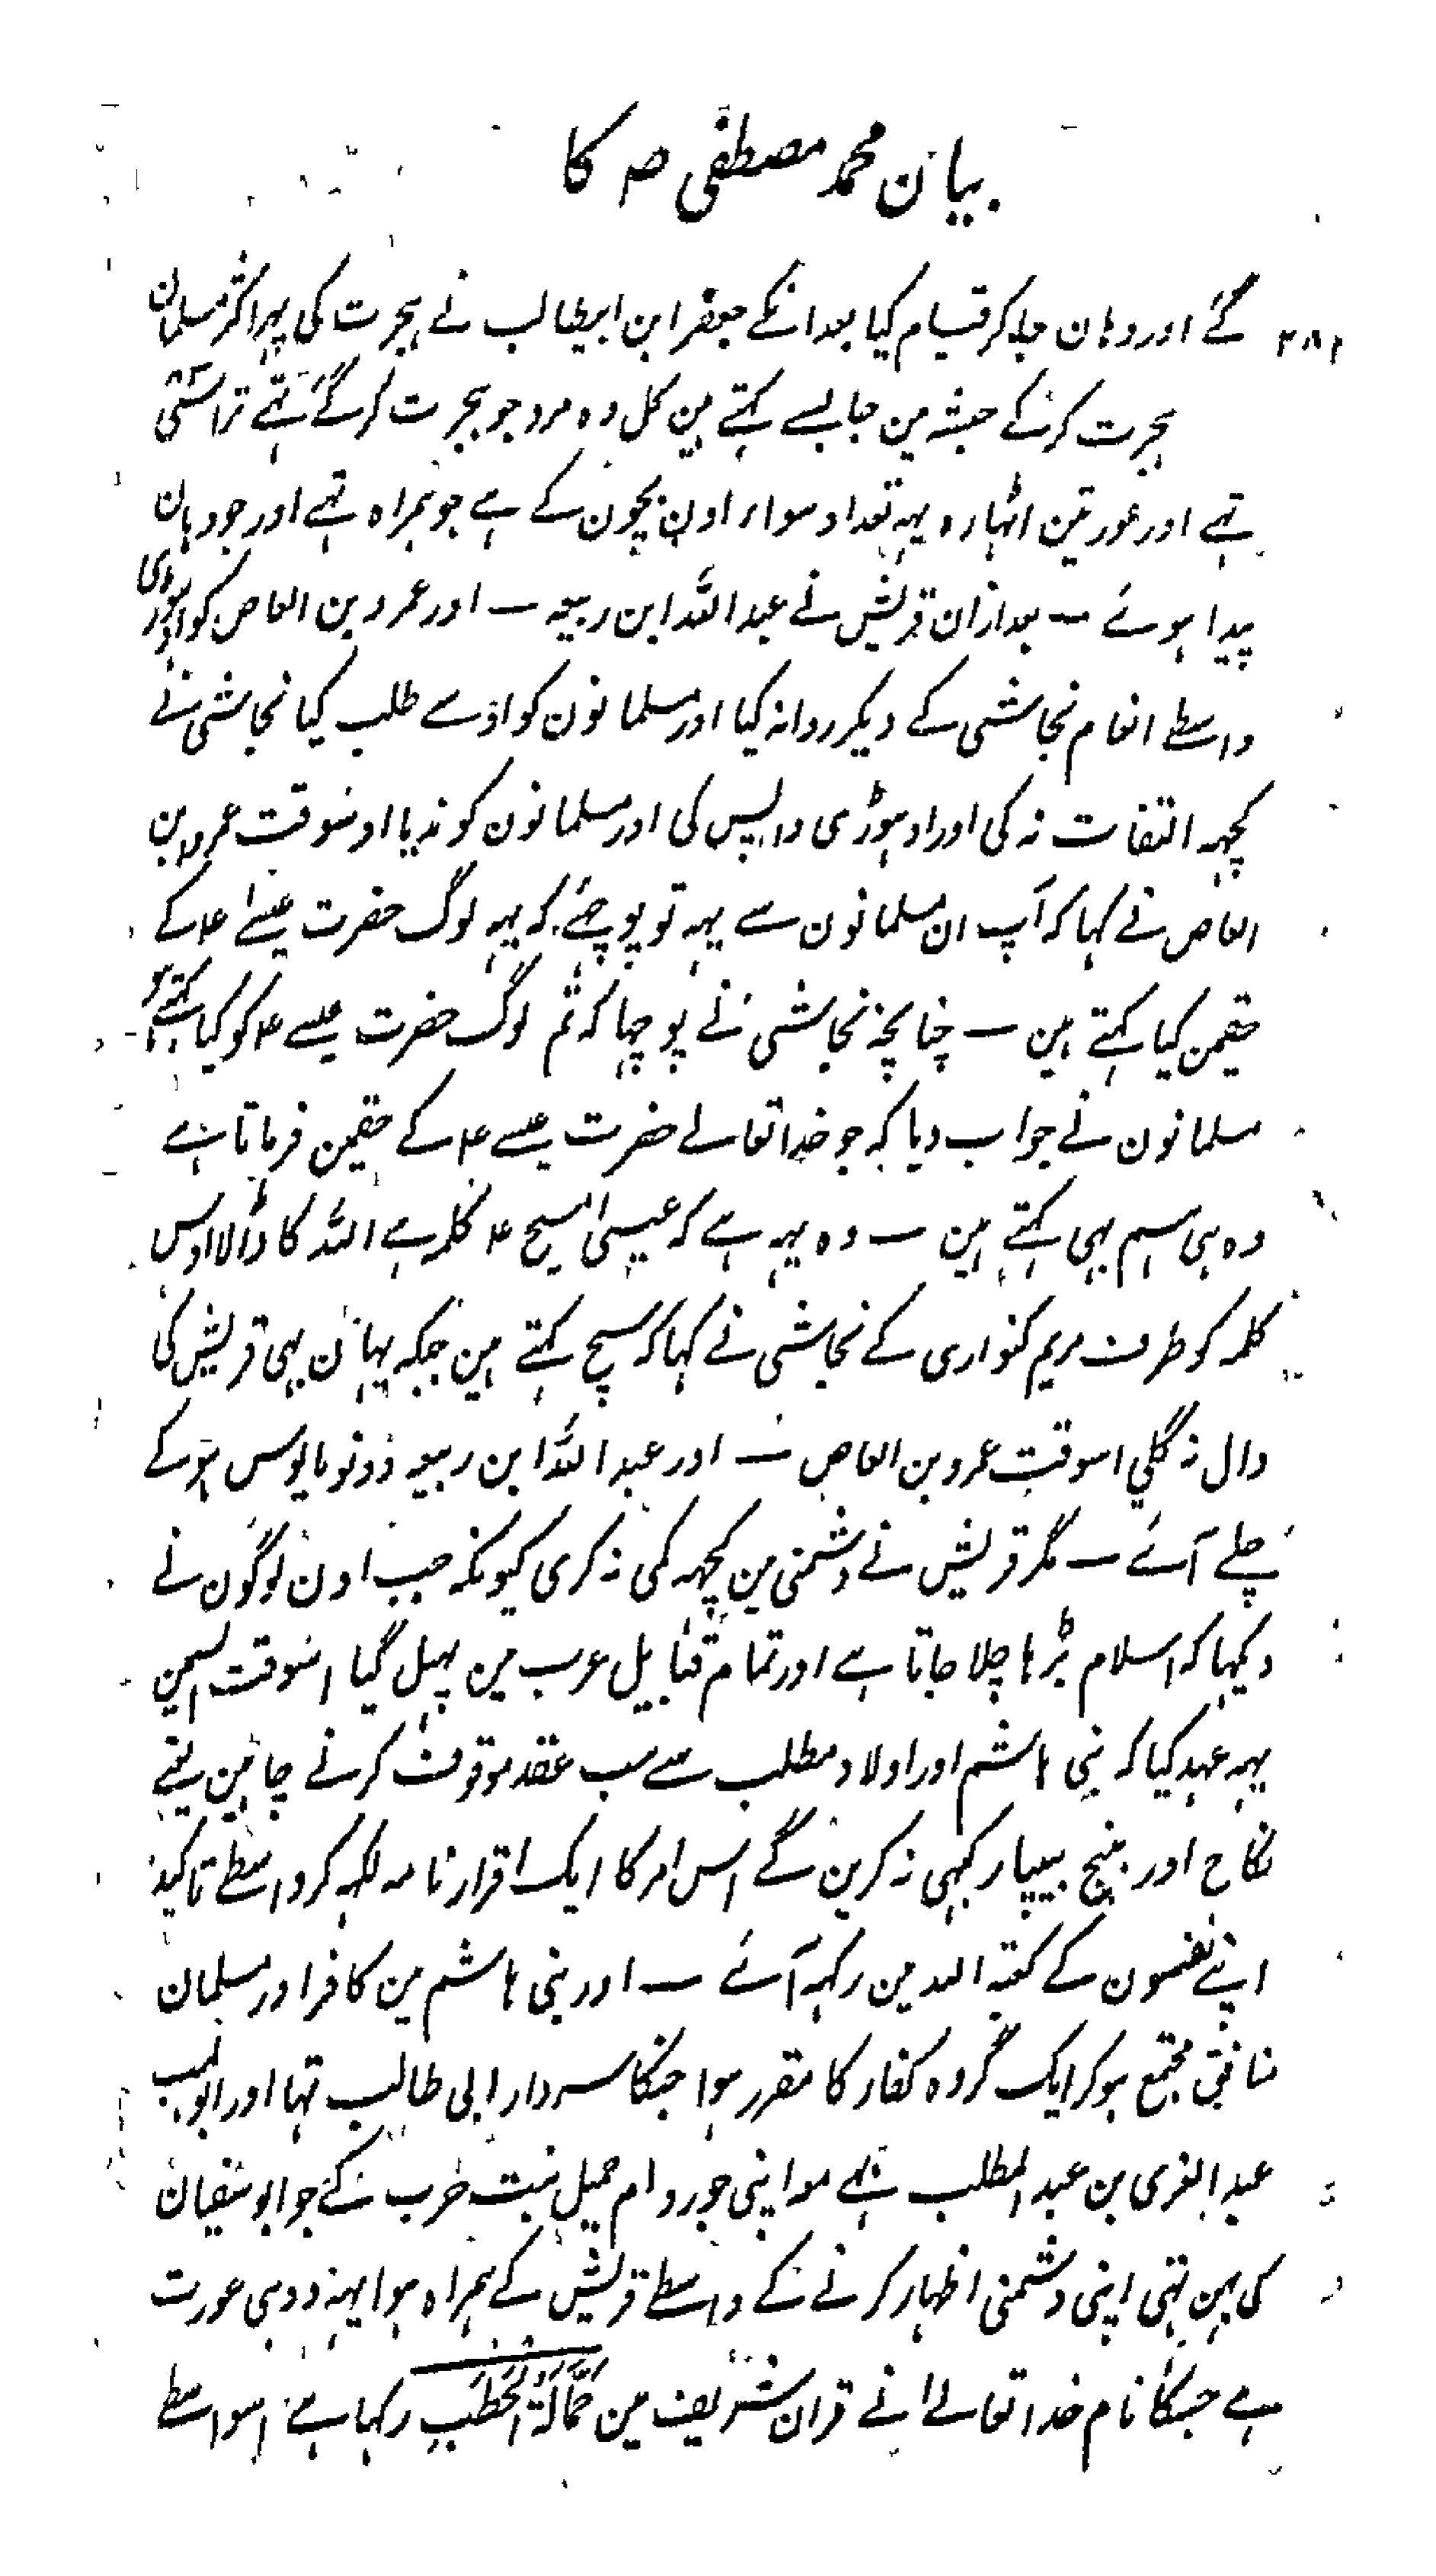 بیان محمد مصطفی ص کا
۲۸۲ گئے اور وہان جاکر قیام کیا بعد انکے جعفر ابن ابیطالب نے ہجرت کی پہر اکثر مسلمان
ہجرت کرکے حبشہ مین جا بسے کہتے ہین کل وہ مرد جو ہجرت کر گئے تہے تراسی
تہے اور عورتین اٹہارہ یہہ تعداد سواء اون بچون کے ہے جو ہمراہ تہے اور جو وہان
پیدا ہوئے ۔ بعد ازان قریش نے عبد اللہ ابن ربیعہ ۔ اور عمرو بن العاص کو اوہوڑی
واسطے انعام نجاشی کے دیکر روانہ کیا اور مسلمانون کو اوسے طلب کیا نجاشی نے
کچہہ التفات نہ کی اور اوہوڑی واپس کی اور مسلمانون کو ندیا اوسوقت عمرو بن
العاص نے کہا کہ آپ ان مسلمانون سے یہہ تو پوچہئے کہ یہہ لوگ حضرت عیسے ۴ کے
حقمین کیا کہتے ہین ۔ چنانچہ نجاشی نے پوچہا کہ تم لوگ حضرت عیسے ۴ کو کیا کہتے ہو
مسلمانون نے جواب دیا کہ جو خدا تعالے حضرت عیسے ۴ کے حقمین فرماتا ہے
وہ ہی ہم بہی کہتے ہین ۔ وہ یہہ ہے کہ عیسی المسیح ۴ کلمہ ہے اللہ کا ڈالا اوس
کلمہ کو طرف مریم کنواری کے نجاشی نے کہا کہ سچ کہتے ہین جبکہ یہان بہی قریش کی
دال نہ گلی اسوقت عمرو بن العاص ۔ اور عبد اللہ ابن ربیعہ دونو مایوس ہوکے
چلے آئے ۔ مگر قریش نے دشمنی مین کچہہ کمی نہ کری کیونکہ جب اون لوگون نے
دیکہا کہ اسلام بڑہا چلا جاتا ہے اور تمام قبایل عرب مین پہیل گیا اسوقت
یہہ عہد کیا کہ بنی ہاشم اور اولاد مطلب سے سب عقد موقوف کرنے چاہین یعنے
نکاح اور بنج بیپار کبہی نہ کرین گے اس امر کا ایک اقرار نامہ لکہہ کر واسطے تاکید
اپنے نفسون کے کعبۃ اللہ مین رکہہ آئے ۔ اور بنی ہاشم مین کافر اور مسلمان
منافق مجتمع ہوکر ایک گروہ کفار کا مقرر ہوا جنکا سردار ابی طالب تہا اور ابو لہب
عبد العزی بن عبد المطلب نے مع اپنی جورو ام جمیل بنت حرب کے جو ابو سفیان
کی بہن تہی اپنی دشمنی اظہار کرنے کے واسطے قریش کے ہمراہ ہوا یہہ وہی عورت
ہے جسکا نام خدا تعالے نے قران شریف مین حَمَّالَةَ الْحَطَبِ رکہا ہے اسواسطے